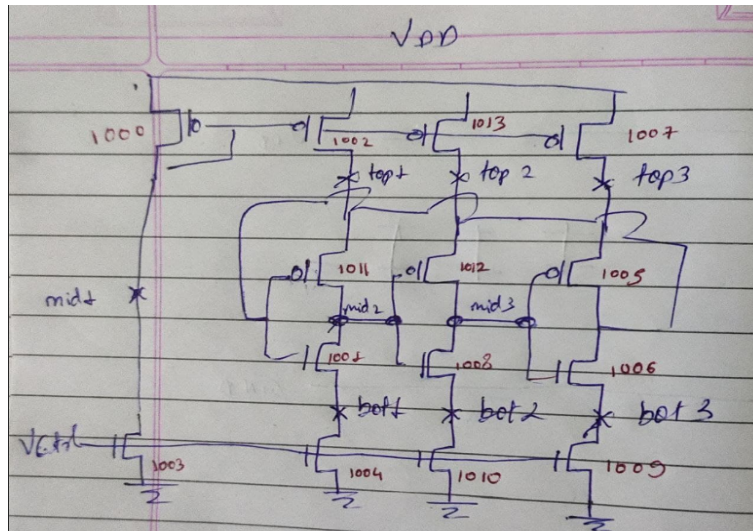 VDD
1000
1002
1013
1007
top1
top 2
top3
1011
1012
1005
mid1
mid2
mid3
1001
1008
1006
bot1
bot2
bot 3
Vctrl
1003
1004
1010
1009